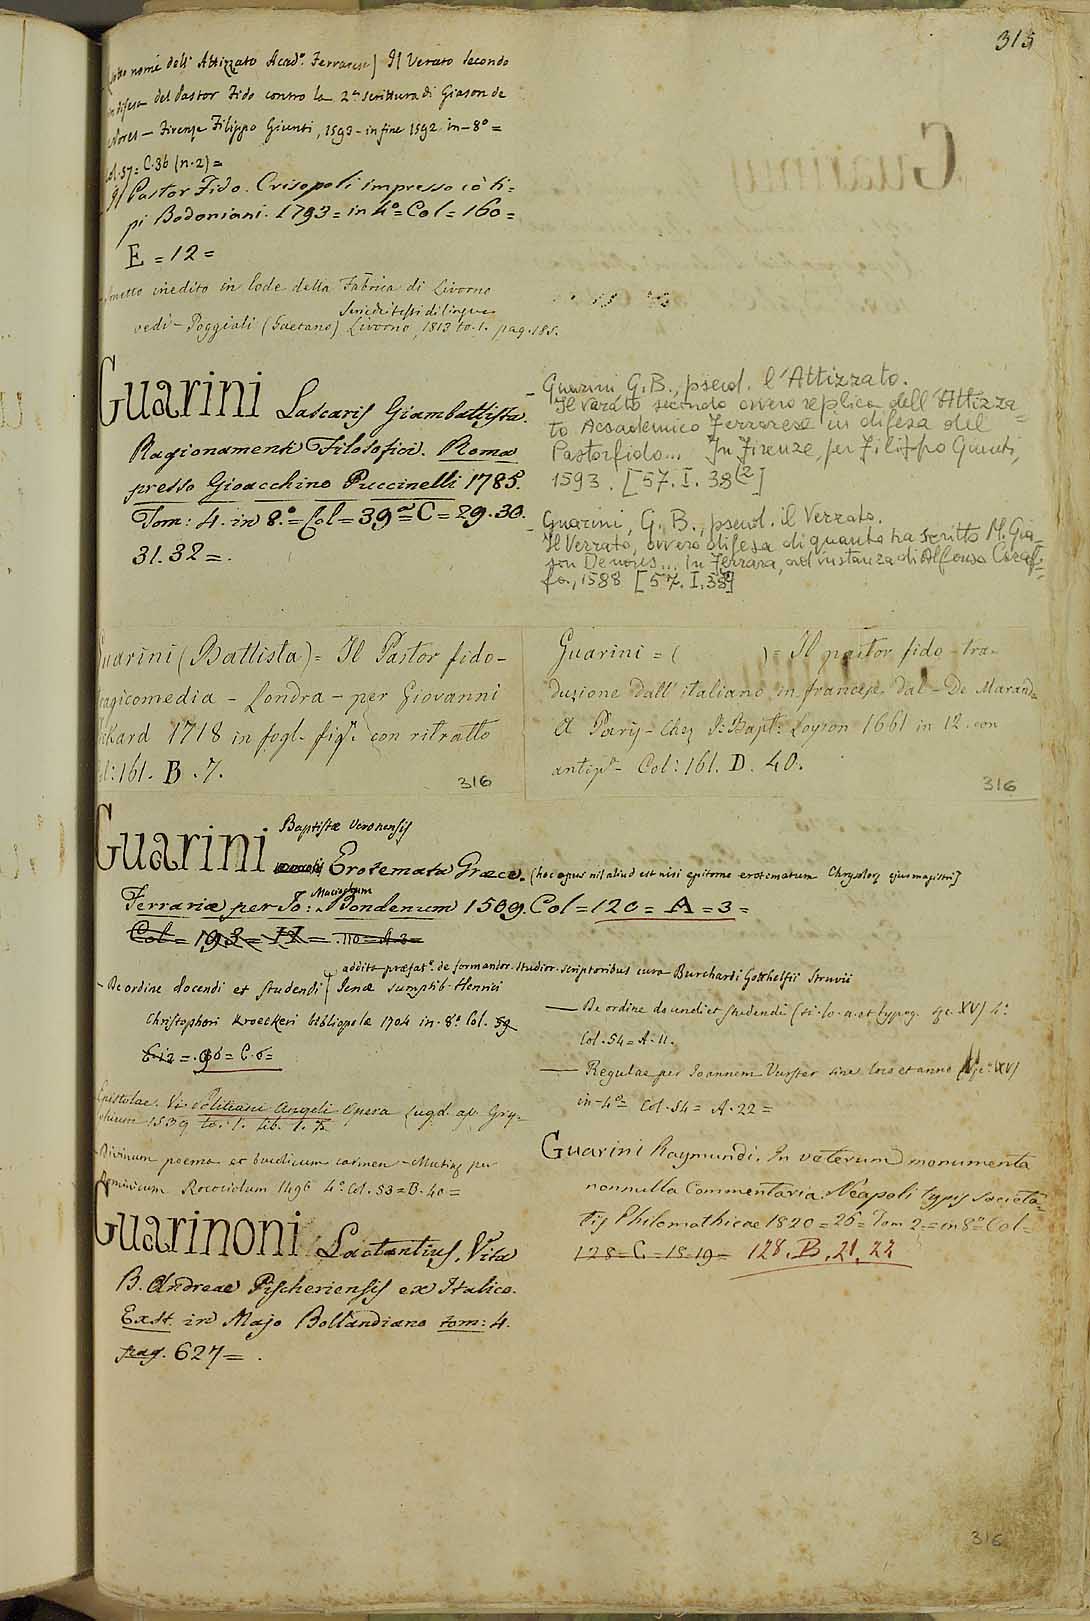 315
(sotto nome dell' Attizzato Acad.º Ferrarese) Il Verato secondo
in difesa del Pastor Fido contro la 2.ª scrittura di Giason de
Nores — Firenze Filippo Giunti, 1593 - in fine 1592 in-8º =
Col. 57 = C. 36 (n. 2) =
Il Pastor Fido. Crisopoli impresso cò ti=
pi Bodoniani. 1793 = in 4º = Col = 160 =
E = 12 =
inedito in lode della Fabrica di Livorno
Serie de testi di lingua
vedi - Poggiali (Gaetano) Livorno, 1813 to. 1. pag. 185.
Guarini Lascaris Giambattista.
Ragionamenti Filosofici. Roma
presso Gioacchino Puccinelli 1785.
Tom: 4. in 8.º = Col = 39 = C = 29. 30.
31. 32 = .
- Guarini G. B., pseud. l'Attizzato.
Il Varato secondo ovvero replica dell'Attizza=
to Accademico Ferrarese in difesa del
Pastorfido... In Firenze, per Filippo Giunti,
1593. [57. I. 38(2]
- Guarini, G. B., pseud. il Verrato.
Il Verrato, ovvero difesa di quanto ha scritto M. Gia=
son Denores... In Ferrara, ad instanza di Alfonso Caraf=
fa, 1588 [57. I. 38]
Guarini (Battista) = Il Pastor fido -
tragicomedia - Londra - per Giovanni
Pickard 1718 in fogl. fig.º con ritratto
Col: 161. B. 7.
316
Guarini = ( ) = Il pastor fido - tra-
duzione dall'italiano in francese dal - De Marand=
A Paris - chez J: Bapt: Loyson 1661 in 12. con
antip.ª - Col: 161. D. 40.
316
Baptistæ Veronensis
Guarini Erotemata Græce. (hoc opus nil aliud est nisi epitome erotematum Chrysoloræ ejus magistri)
Maciochum
Ferrariæ per Jo: Bondenum 1509. Col = 120 = A = 3 =
Col = 193 = = 110 = A 3 =
addita præfat.e de formandor. studior. scriptoribus cura Burchardi Gotthelfii Struvii
- De ordine docendi et studendi Jenæ sumptib. Henrici
Christophori Kroeckeri bibliopolæ 1704 in-8.º Col. 59
E 12 = 96 = C. 6 =
Epistolae. V. Politiani Angeli Opera Lugd. ap. Gry-
phium 1539 to. 1. lib. 1.
- Divinum poema et bucolicum carmen - Mutinæ per
Dominicum Rococidum 1496 4.º Col. 53 = B. 40 =
— De ordine docendi et studendi (si. lo. a. et typog. sec. XV) 4.º
Col. 54 = A. 11.
— Regulae per Joannem Vurster sine loco et anno (sec.º XV)
in-4º = Col. 54 = A. 22 =
Guarini Raymundi. In veterum monumenta
nonnulla Commentaria. Neapoli typis societa=
tis Philomathicae 1820 = 26 = Tom 2 = in 8.º Col =
128 = C = 18. 19 = 128. B. 21. 22
Guarinoni Lactantius. Vita
B. Andreae Pischeriensis ex Italico.
Exst. in Majo Bollandiano tom: 4.
pag. 627 = .
316